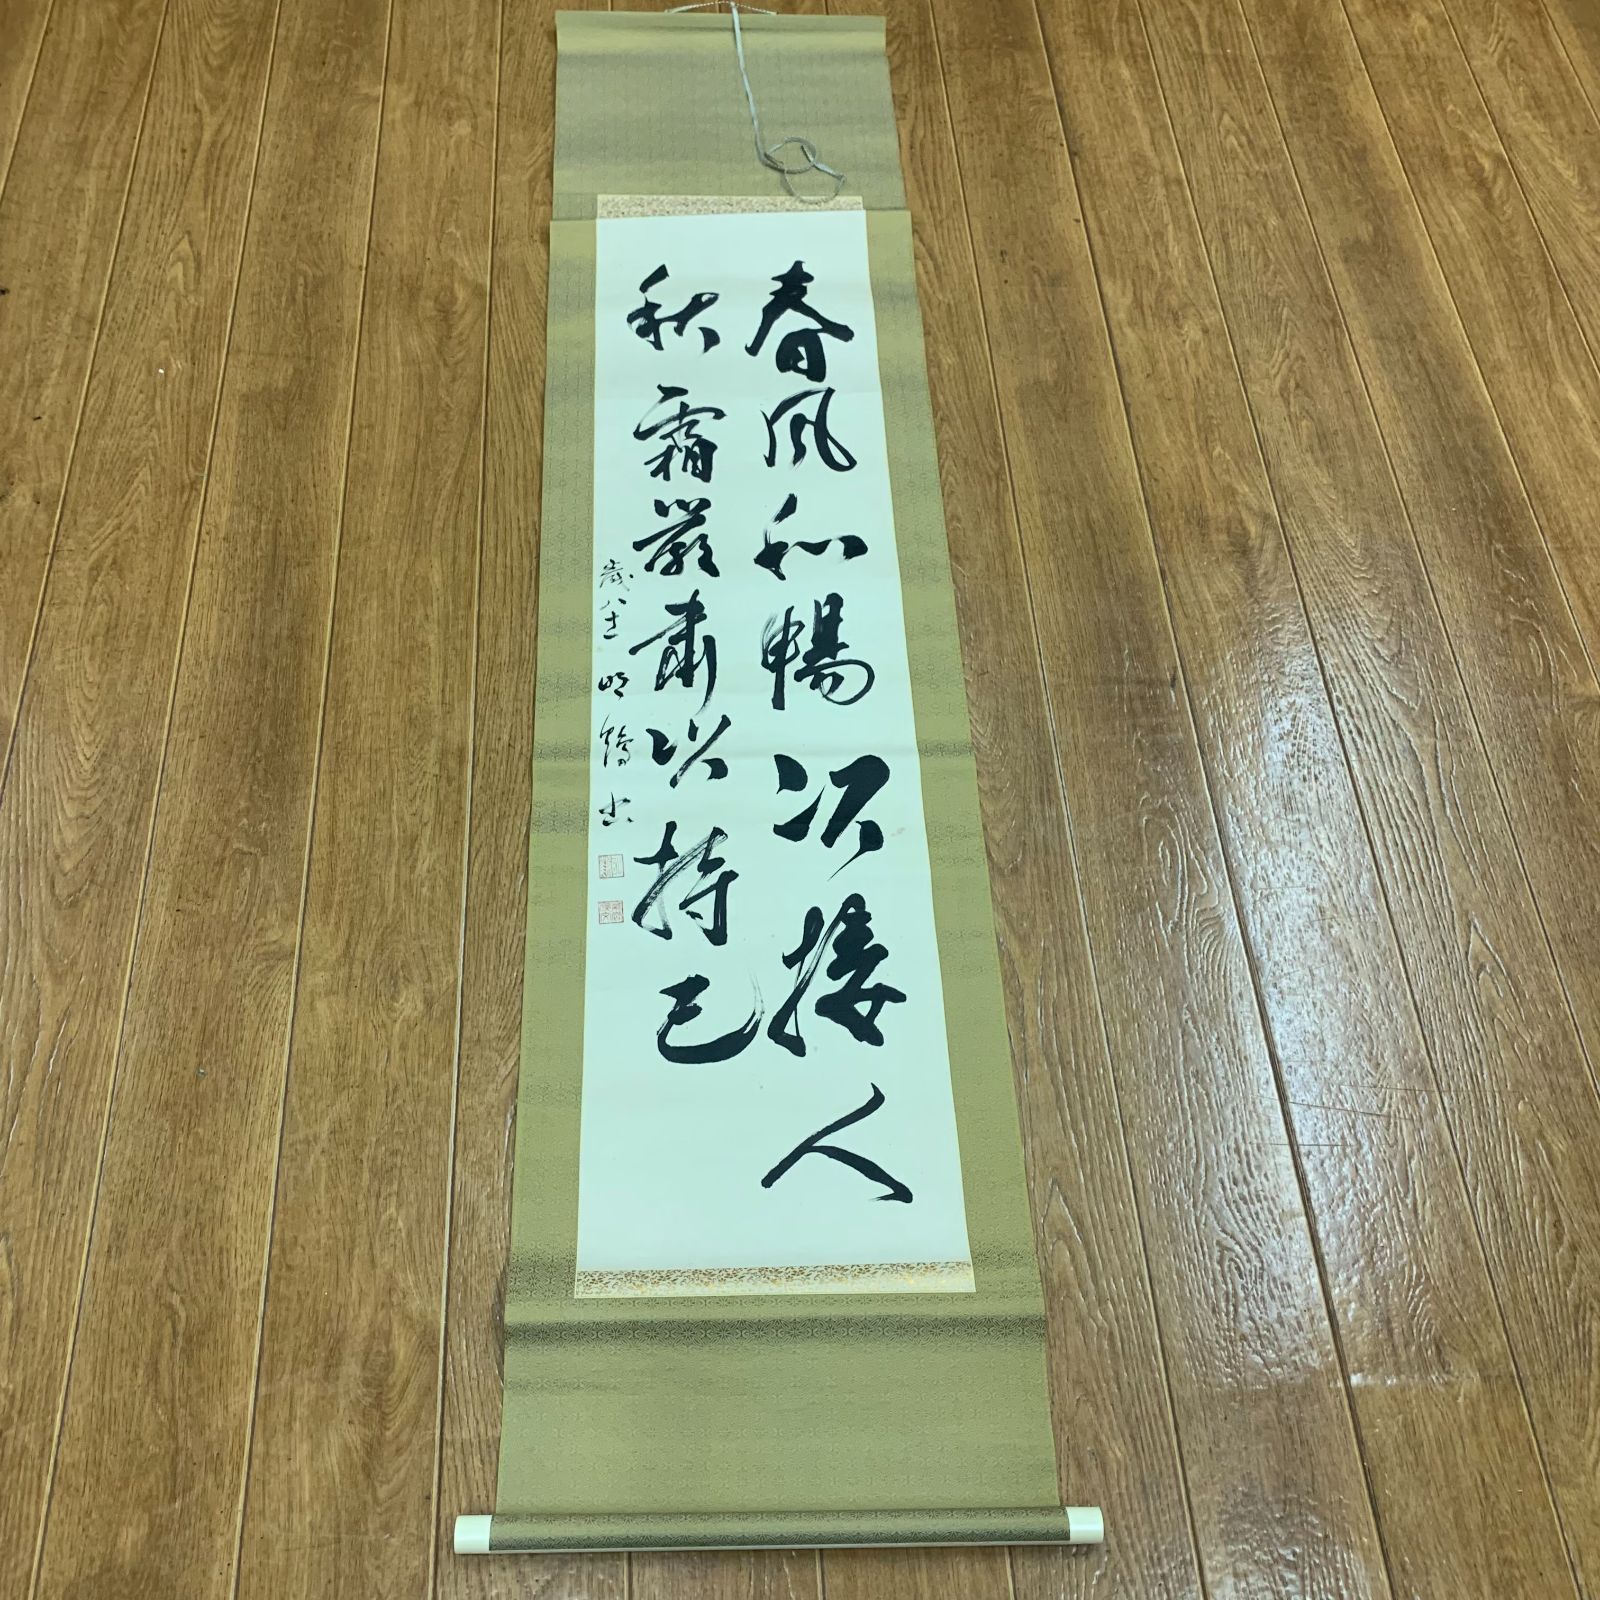 春風和暢以接人
秋霜嚴肅以持己
歳八十 明鶴書